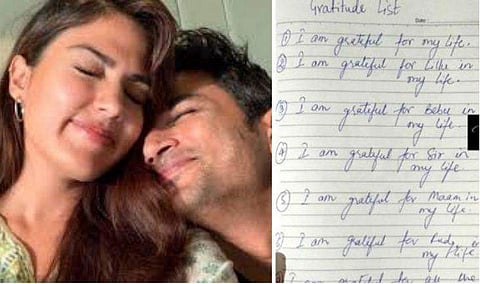 Gratitude List
Date
① I am grateful for my life.
② I am grateful for Lillu in
my life.
③ I am grateful for Bebu in
my life.
④ I am grateful for Sir in
my life.
⑤ I am grateful for Maam in
my life.
I am grateful for Fudge in
my life
I am grateful for all the